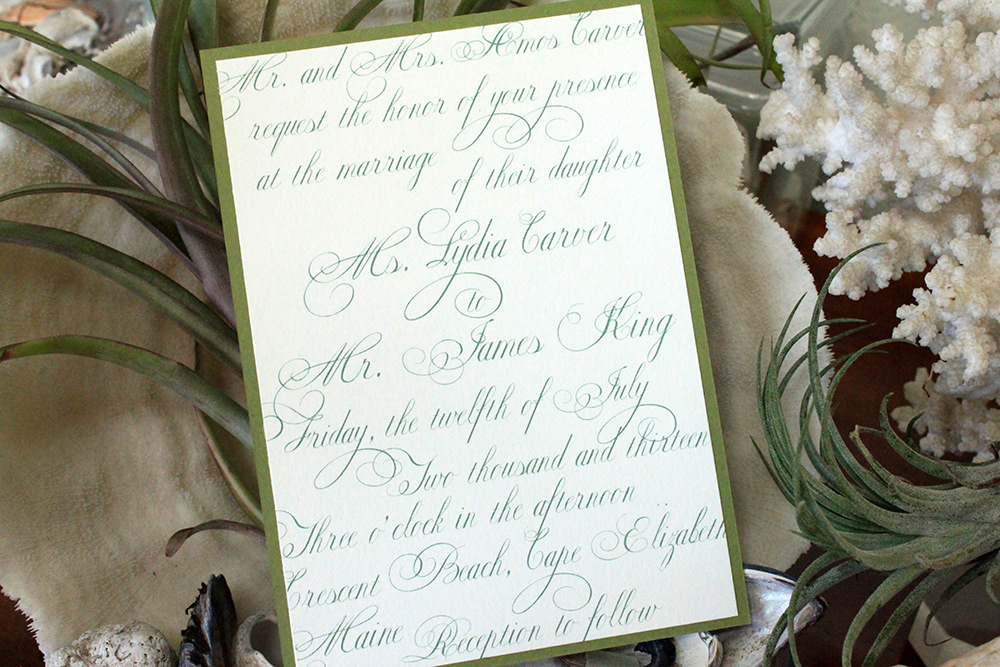 Mr. and Mrs. Amos Carver
request the honor of your presence
at the marriage of their daughter
Ms. Lydia Carver
to
Mr. James King
Friday, the twelfth of July
Two thousand and thirteen
Three o'clock in the afternoon
Crescent Beach, Cape Elizabeth
Maine Reception to follow